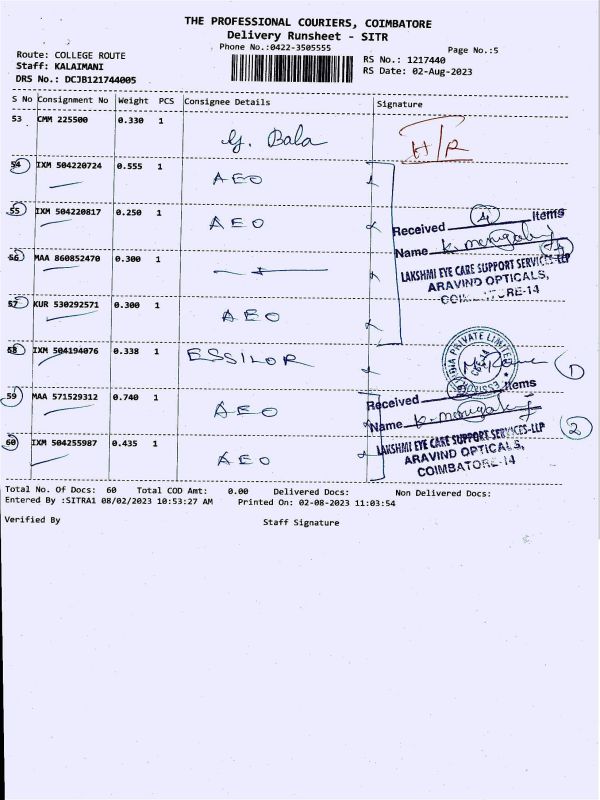 THE PROFESSIONAL COURIERS, COIMBATORE
Delivery Runsheet - SITR
Phone No.:0422-3505555 Page No.:5
Route: COLLEGE ROUTE
Staff: KALAIMANI
DRS No.: DCJB121744005
RS No.: 1217440
RS Date: 02-Aug-2023
S No Consignment No Weight PCS Consignee Details Signature
53 CMM 225500 0.330 1 Bala H/R
54 IXM 504220724 0.555 1 AEO
55 IXM 504220817 0.250 1 AEO
Received 4 Items
Name
56 MAA 860852470 0.300 1
LAKSHMI EYE CARE SUPPORT SERVICES-LLP
ARAVIND OPTICALS,
57 KUR 530292571 0.300 1 AEO
58 IXM 504194076 0.338 1 ESSILOR
PRIVATE LIMITED
1
59 MAA 571529312 0.740 1 AEO
Received Items
Name
2
60 IXM 504255987 0.435 1 AEO
LAKSHMI EYE CARE SUPPORT SERVICES-LLP
ARAVIND OPTICALS,
COIMBATORE-14
Total No. Of Docs: 60 Total COD Amt: 0.00 Delivered Docs: Non Delivered Docs:
Entered By :SITRA1 08/02/2023 10:53:27 AM Printed On: 02-08-2023 11:03:54
Verified By Staff Signature